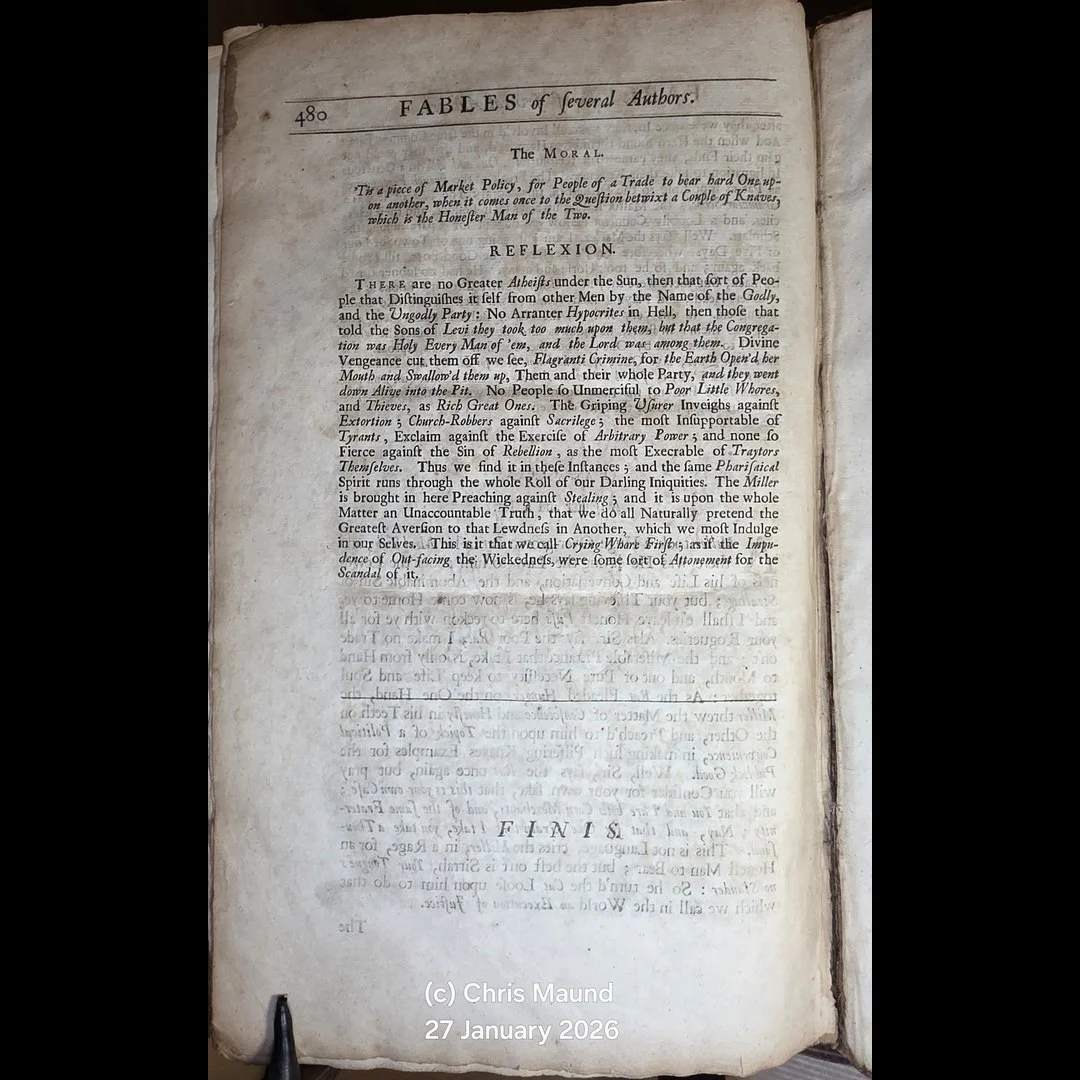 480 FABLES of ſeveral Authors.
The MORAL.
'Tis a piece of Market Policy, for People of a Trade to bear hard One up-
on another, when it comes once to the Queſtion betwixt a Couple of Knaves,
which is the Honeſter Man of the Two.
REFLEXION.
THERE are no Greater Atheiſts under the Sun, then that ſort of Peo-
ple that Diſtinguiſhes it ſelf from other Men by the Name of the Godly,
and the Ungodly Party: No Arranter Hypocrites in Hell, then thoſe that
told the Sons of Levi they took too much upon them; but that the Congrega-
tion was Holy Every Man of 'em, and the Lord was among them. Divine
Vengeance cut them off we ſee, Flagranti Crimine, for the Earth Open'd her
Mouth and Swallow'd them up, Them and their whole Party, and they went
down Alive into the Pit. No People ſo Unmerciful to Poor Little Whores,
and Thieves, as Rich Great Ones. The Griping Uſurer Inveighs against
Extortion; Church-Robbers againſt Sacrilege; the moſt Inſupportable of
Tyrants, Exclaim againſt the Exerciſe of Arbitrary Power; and none ſo
Fierce againſt the Sin of Rebellion, as the moſt Execrable of Traytors
Themſelves. Thus we find it in theſe Inſtances; and the ſame Phariſaical
Spirit runs through the whole Roll of our Darling Iniquities. The Miller
is brought in here Preaching againſt Stealing; and it is upon the whole
Matter an Unaccountable Truth, that we do all Naturally pretend the
Greateſt Averſion to that Lewdneſs in Another, which we moſt Indulge
in our Selves. This is it that we call Crying Whore Firſt; as if the Impu-
dence of Out-facing the Wickedneſs, were ſome ſort of Attonement for the
Scandal of it.
FINIS.
(c) Chris Maund
27 January 2026